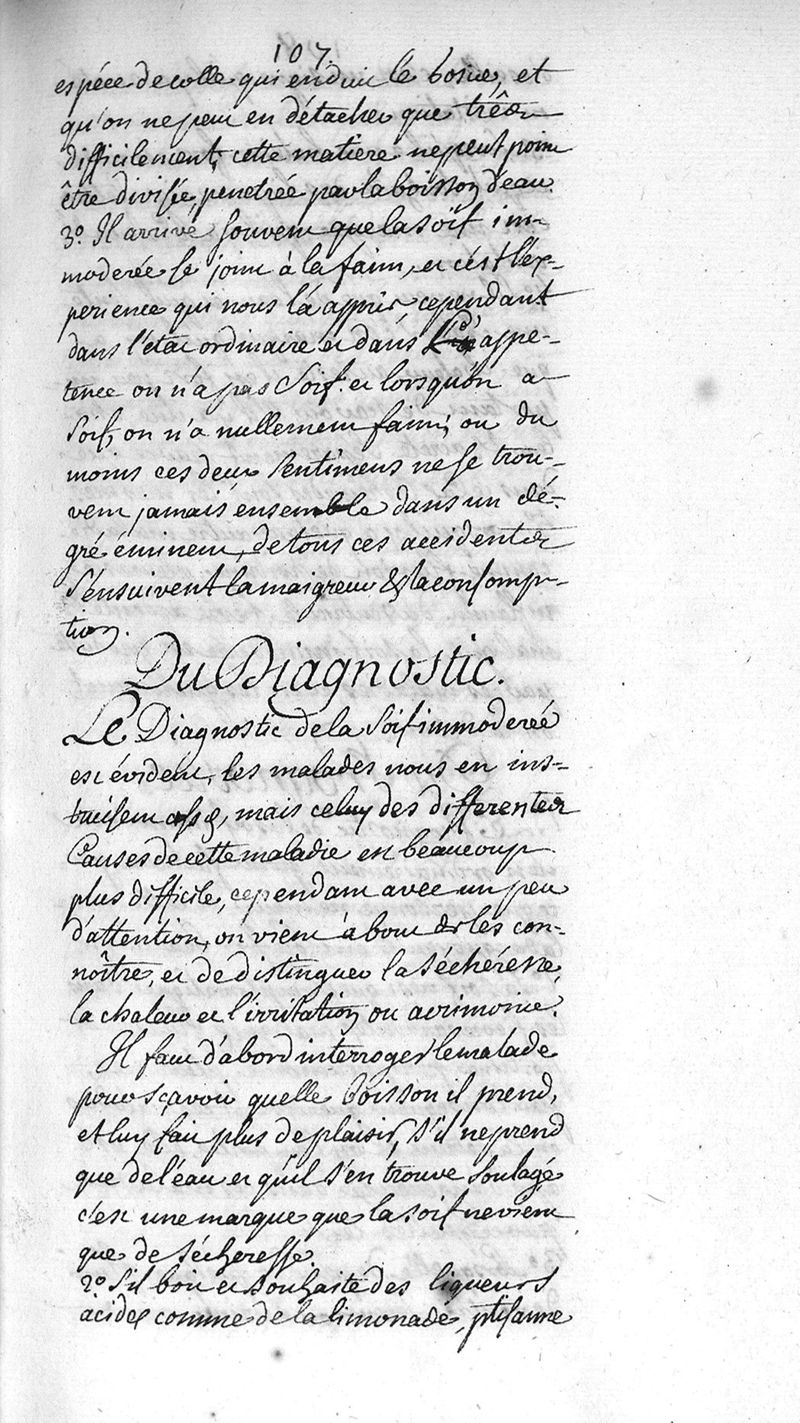 107
espéce de colle qui enduit le boiue, et
qu'on ne peut en détacher que trés
difficilement, cette matiere ne peut point
être divisée, penetrée par la boisson d'eau.
3.° Il arrive souvent que la soif im-
moderée se joint à la faim, et c'est l'éx-
perience qui nous l'a appris, cependant
dans l'état ordinaire et dans appe-
tence on n'a pas soif. et lorsqu'on a
soif, on n'a nullement faim; ou du
moins ces deux sentimens ne se trou-
vent jamais ensemble dans un dé-
gré éminent, de tous ces accidents
s'ensuivent la maigreur & la consomp-
tion.
Du Diagnostic.
Le Diagnostic de la soif immoderée
est évident, les malades nous en ins-
truisent assés, mais celuy des differentes
Causes de cette maladie est beaucoup
plus difficile, cependant avec un peu
d'attention, on vient à bout de les con-
noître, et de distinguer la sécheresse,
la chaleur et l'irritation ou acrimonie.
Il faut d'abord interroger le malade
pour sçavoir quelle boisson il prend,
et luy fait plus de plaisir, s'il ne prend
que de l'éau et qu'il s'en trouve soulagé
c'est une marque que la soif ne vient
que de sécheresse.
2.° s'il boit et souhaite des liqueurs
acides comme de la limonade, ptisanne